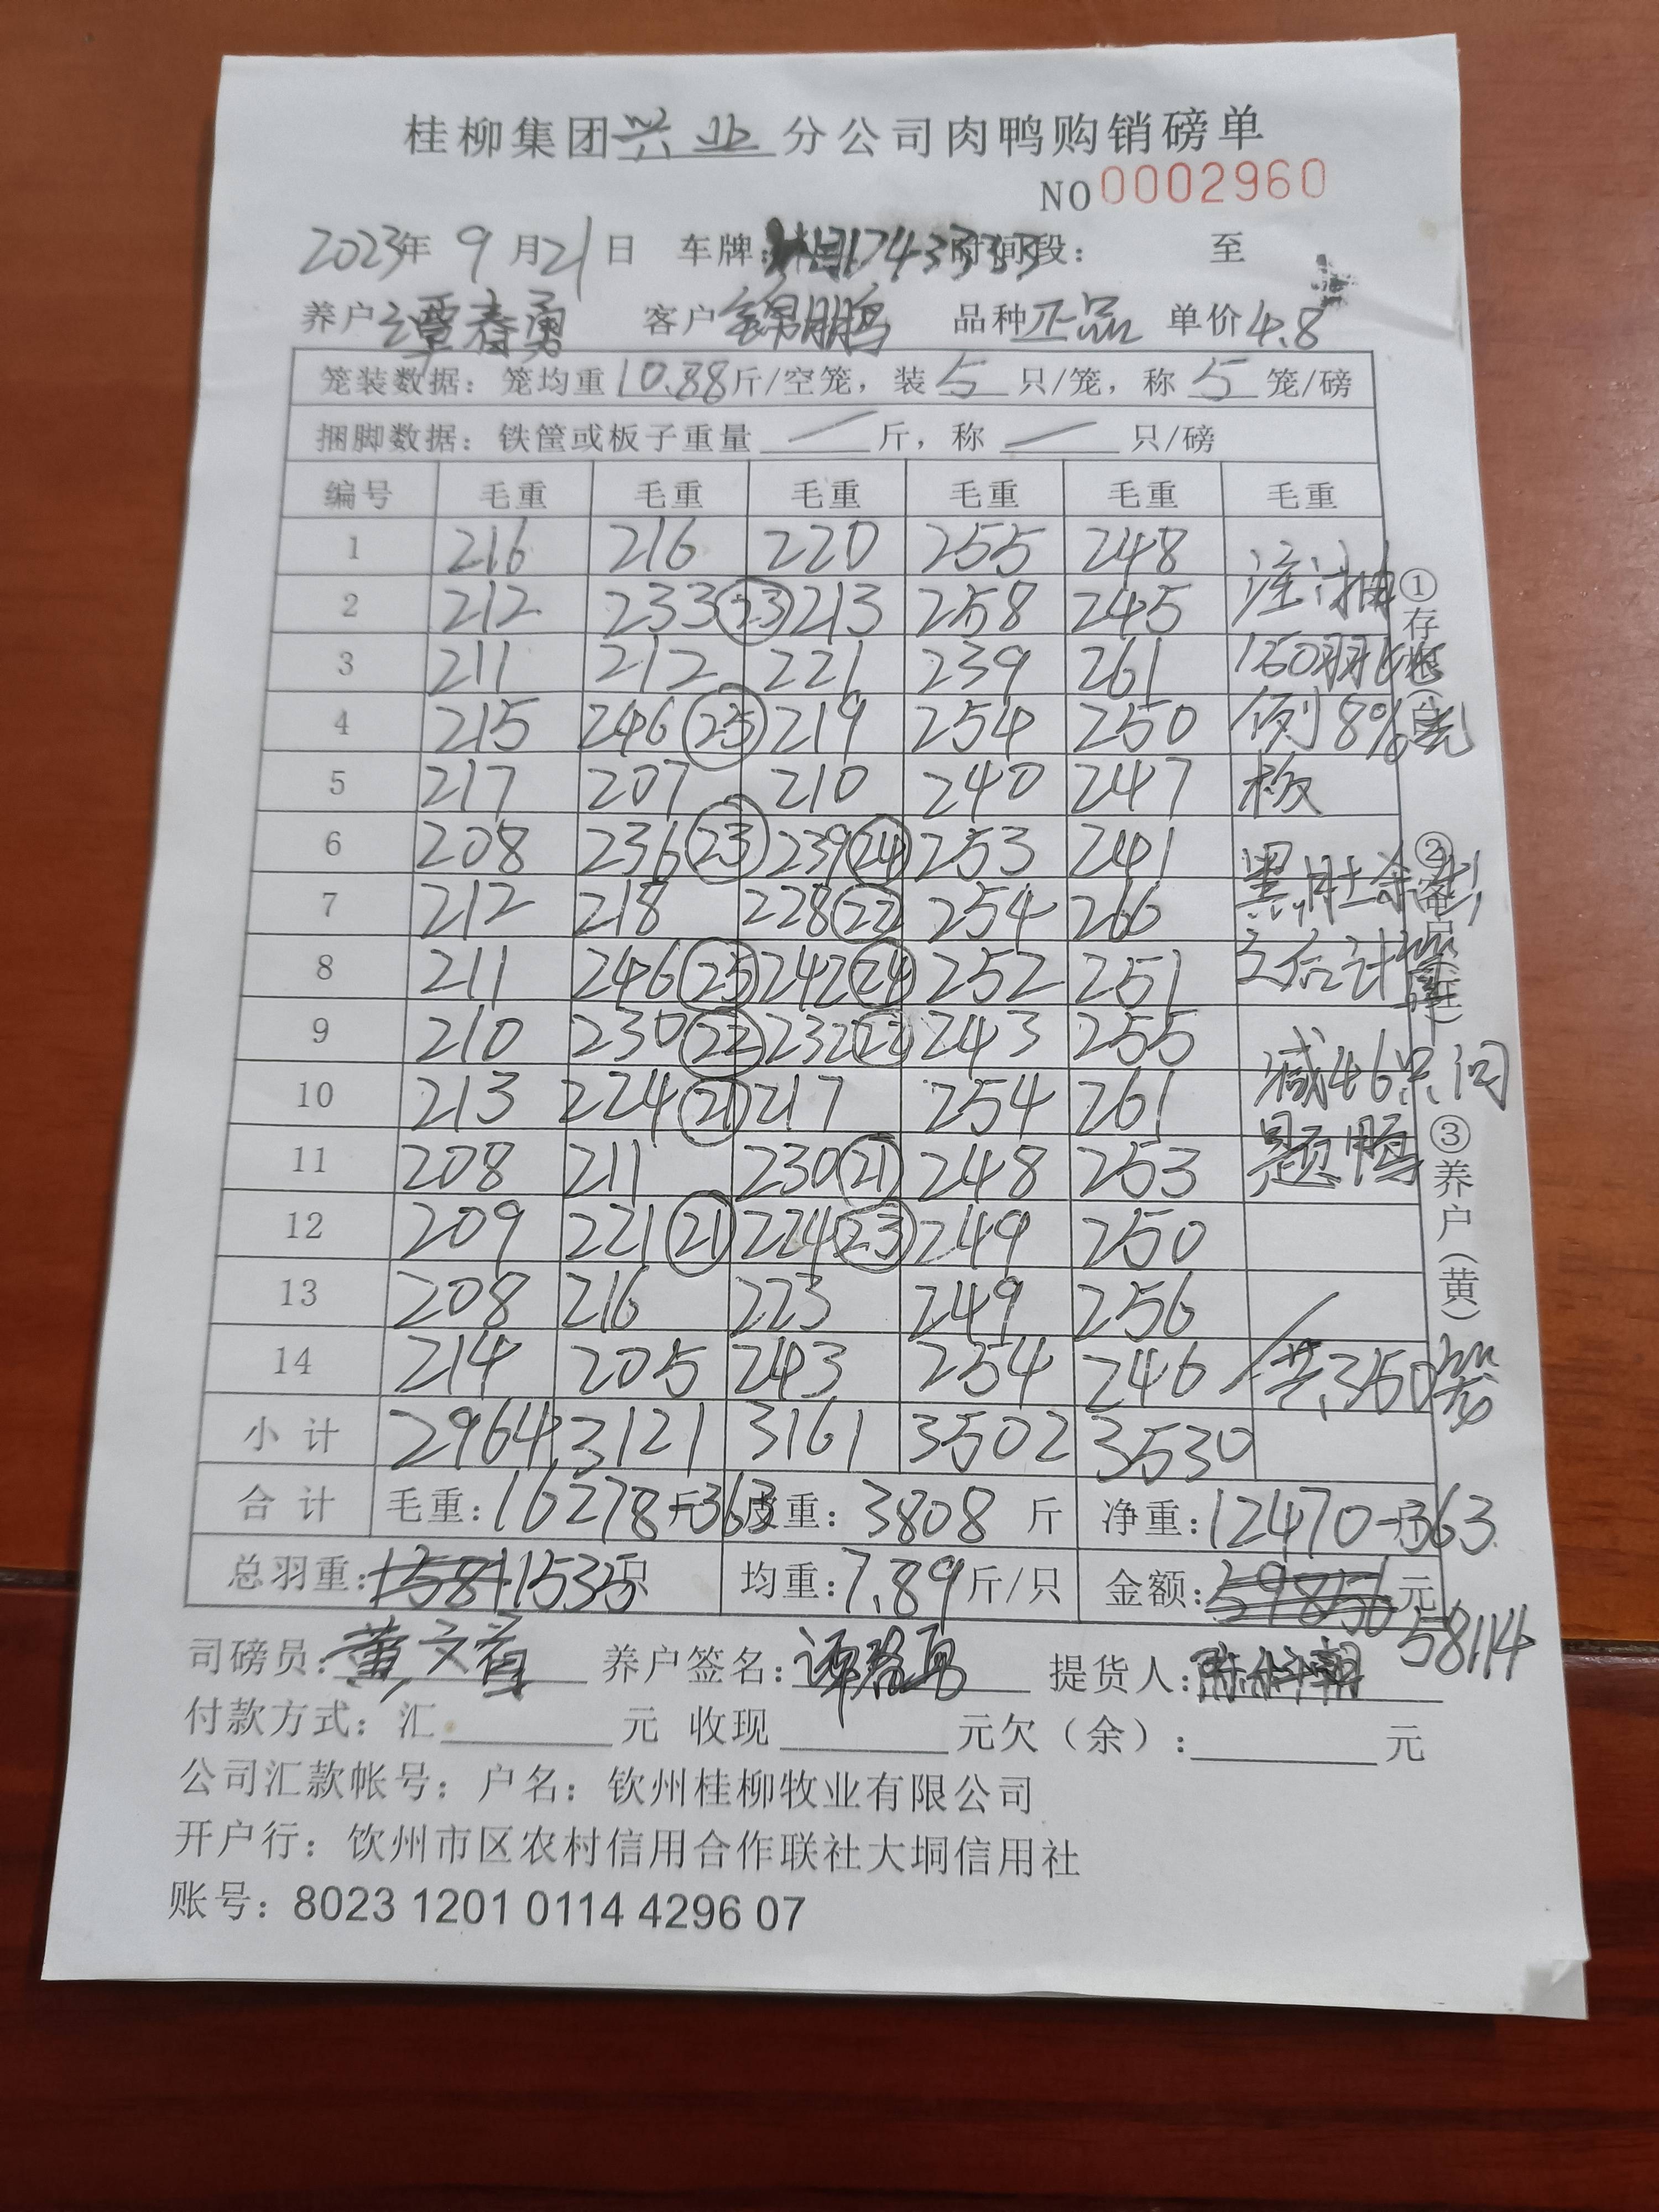 桂柳集团兴业分公司肉鸭购销磅单
NO 0002960
2023年 9月21日 车牌: 时间段: 至
养户 谭春勇 客户 锦鹏 品种 正品 单价 4.8
笼装数据: 笼均重 10.88 斤/空笼, 装 5 只/笼, 称 5 笼/磅
捆脚数据: 铁筐或板子重量 / 斤, 称 / 只/磅
编号 毛重 毛重 毛重 毛重 毛重 毛重
1 216 216 220 255 248
2 212 233 23 213 258 245 注:抽
3 211 212 221 239 261 150羽比
4 215 246 25 219 254 250 例8%
5 217 207 210 240 247 板
6 208 236 23 239 24 253 241
7 212 218 228 22 254 266
8 211 246 25 242 24 252 251
9 210 230 22 232 243 255 减46只问
10 213 224 21 217 254 261 题鸭
11 208 211 230 21 248 253
12 209 221 21 224 23 249 250
13 208 216 223 249 256
14 214 205 243 254 246 共350笼
小计 2964 3121 3161 3502 3530
合计 毛重: 16278斤-363 皮重: 3808 斤 净重: 12470-363
总羽重: 1581 1535只 均重: 7.89斤/只 金额: 59856元
58114
司磅员: 黄文 养户签名: 谭春勇 提货人:
付款方式: 汇 元 收现 元欠(余): 元
公司汇款帐号: 户名: 钦州桂柳牧业有限公司
开户行: 饮州市区农村信用合作联社大垌信用社
账号: 8023 1201 0114 4296 07
①存
②客户
③养户(黄)